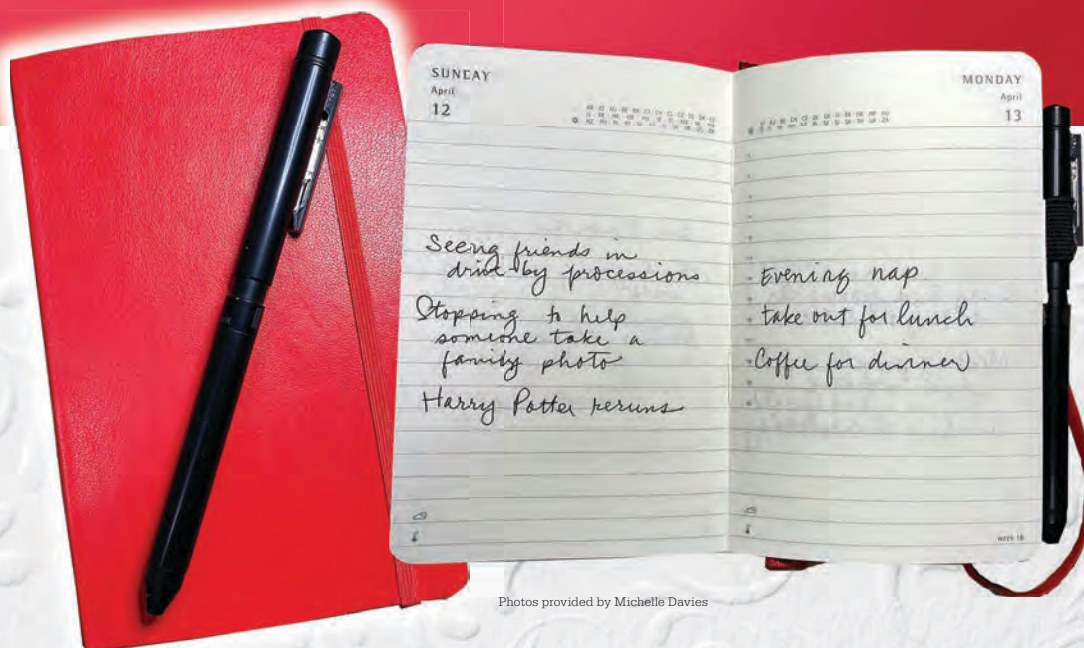 SUNDAY
April
12
Seeing friends in
drive-by processions
Stopping to help
someone take a
family photo
Harry Potter reruns
MONDAY
April
13
Evening nap
take out for lunch
Coffee for dinner
week 16
Photos provided by Michelle Davies